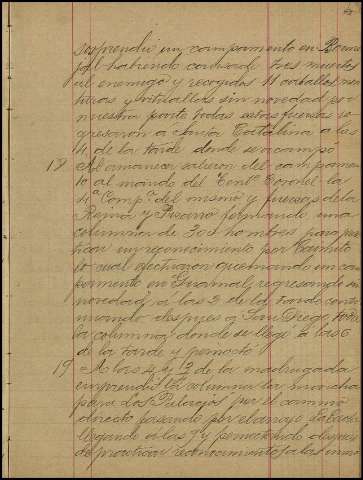 sosprendió un campamento en
habiendo causado tres muertos
al enemigo y recogidos 11 caballos
y vituallas sin novedad por
nuestra parte todas estas fuerzas re-
gresaron a Santa Catalina a las
4 de la tarde donde se acampó
18 Al amanecer salieron del campamen-
to al mando del Tente Coronel la
4ª Compª del mismo y fuerzas de la
Reina y Pizarro formando una
columna de 300 hombres para prac-
ticar un reconocimiento por
lo cual efectuaron quemando un cam-
pamento en Guamal, regresando sin
novedad a las 3 de la tarde conti-
nuando despues a San Diego toda
la columna donde se llegó a las 6
de la tarde y pernoctó
19 A las 4 y ½ de la madrugada
emprendió la columna la marcha
para Los Palacios por el camino
directo pasando por el arroyo
llegando a las 9 y pernoctando despues
de practicar reconocimientos a las